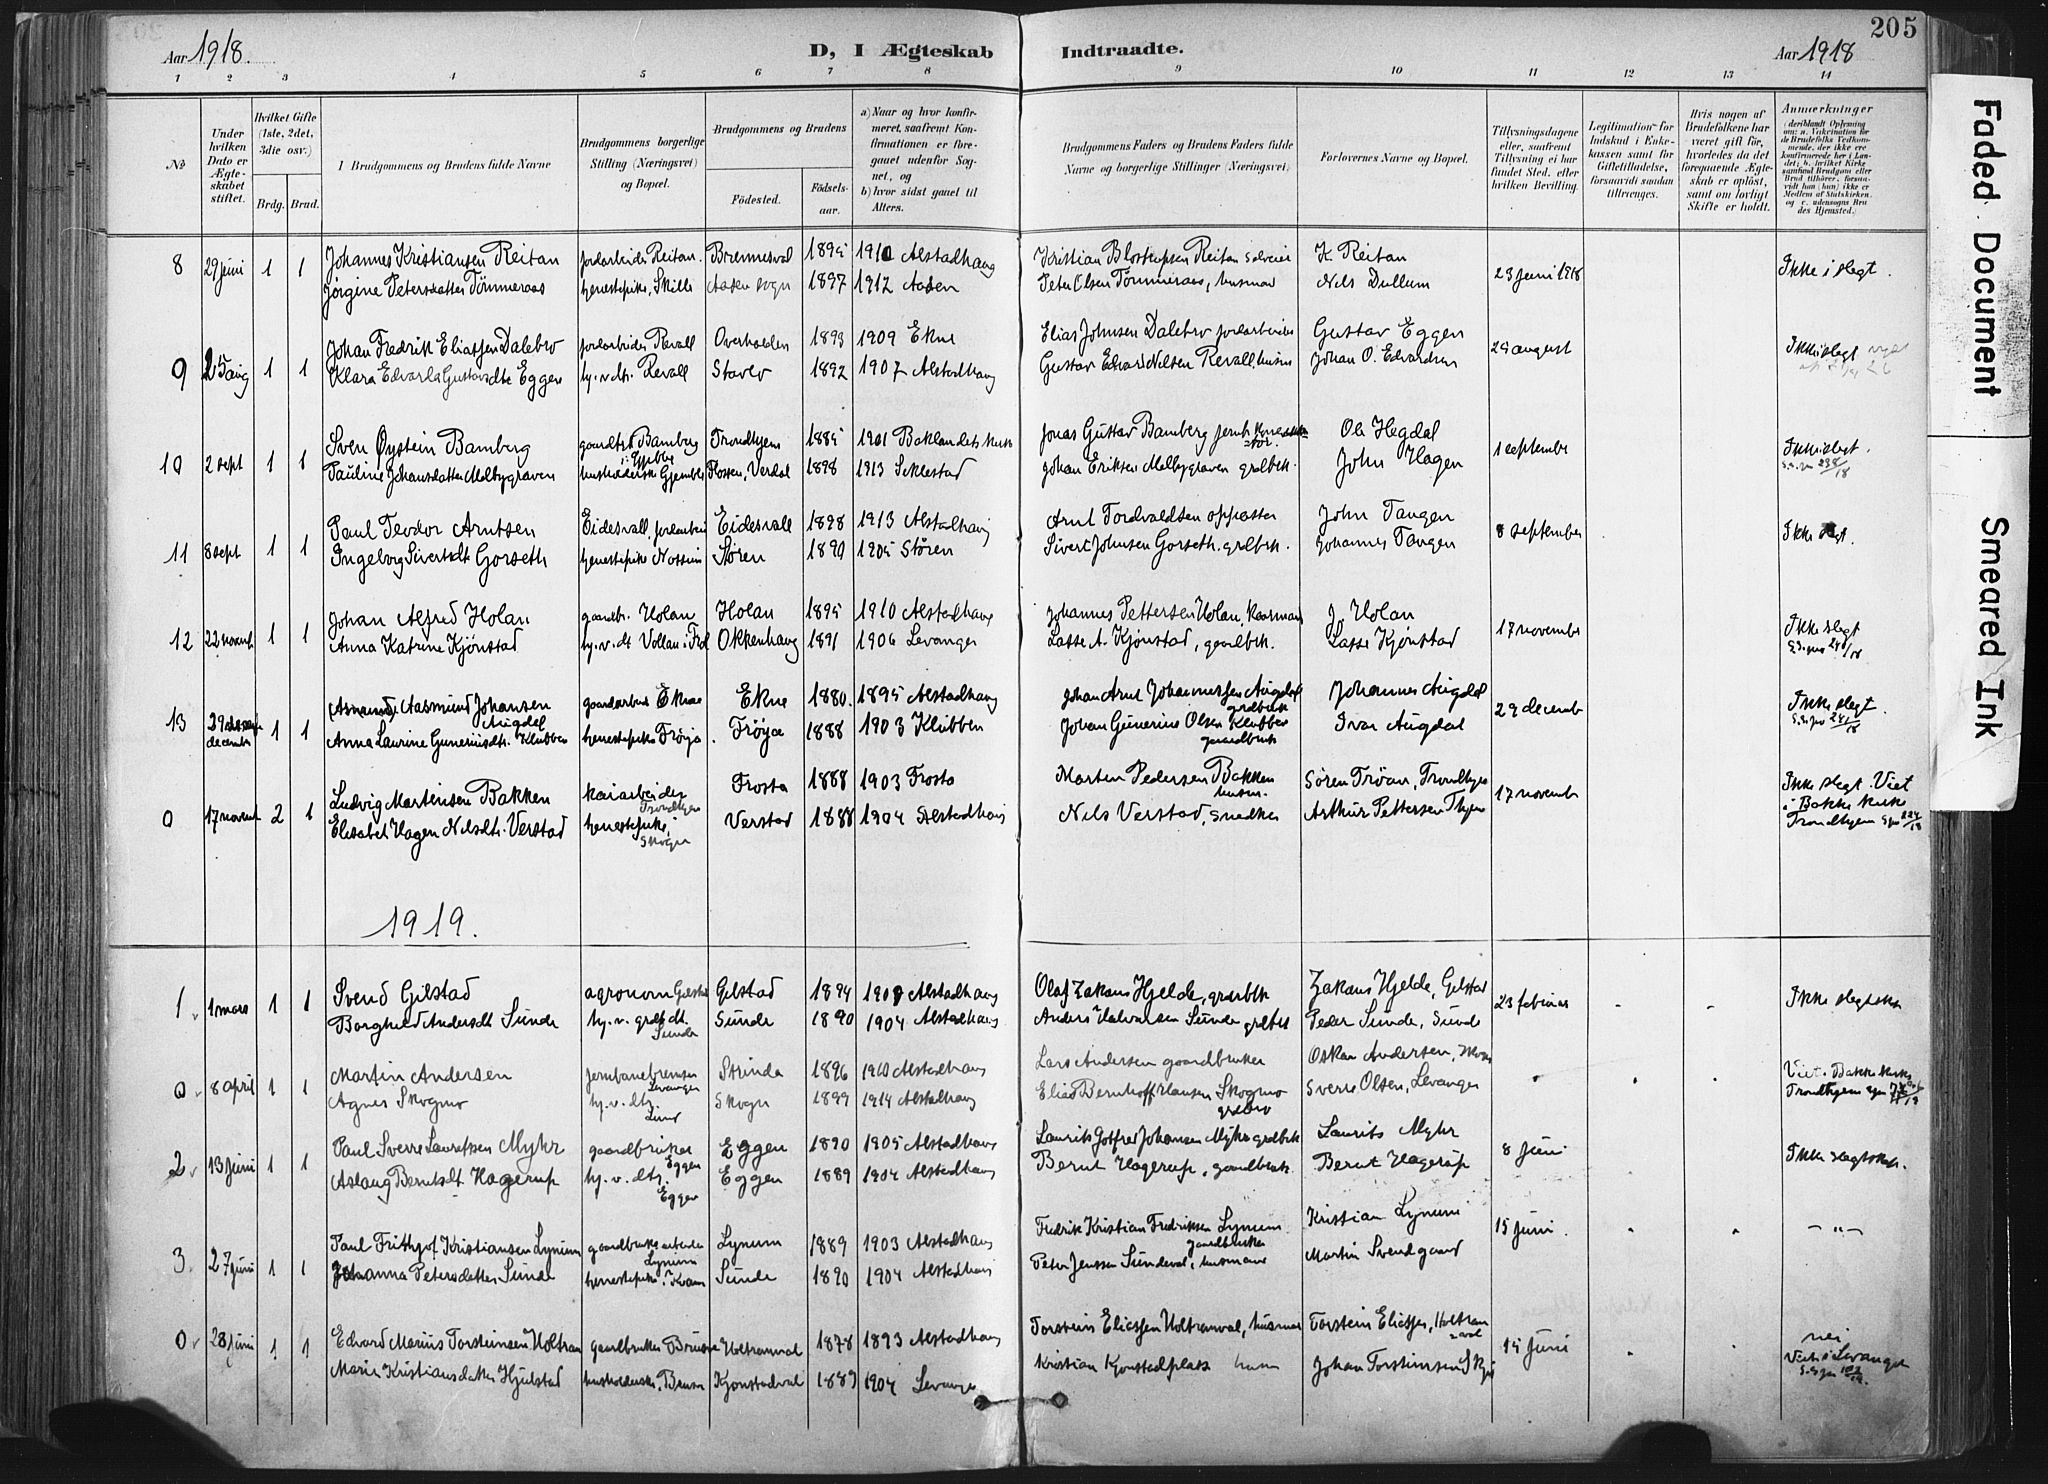 205
Aar 1918.
D, I Ægteskab Indtraadte.
Aar 1918
1 2 3 4 5 6 7 8 9 10 11 12 13 14
No
Under hvilken Dato er Ægteskabet stiftet.
Hvilket Gifte (1ste, 2det, 3die osv.)
Brdg. Brud.
I Brudgommens og Brudens fulde Navne
Brudgommens borgerlige Stilling (Næringsvei) og Bopæl.
Brudgommens og Brudens
Födested.
Födselsaar.
a) Naar og hvor konfirmeret, saafremt Konfirmationen er foregaaet udenfor Sognet, og
b) hvor sidst gaaet til Alters.
Brudgommens Faders og Brudens Faders fulde Navne og borgerlige Stillinger (Næringsvei)
Forlovernes Navne og Bopæl.
Tillysningsdagene eller, saafremt Tillysning ei har fundet Sted, efter hvilken Bevilling.
Legitimation for Indskud i Enkekassen samt for Giftetilladelse, forsaavidt saadan tiltrænges.
Hvis nogen af Brudefolkene har været gift för, hvorledes da det foregaaende Ægteskab er oplöst, samt om lovligt Skifte er holdt.
Anmærkninger
8 29 juni 1 1 Johannes Kristiansen Reitan jordarbeider Reitan. 1895 1910 Alstadhaug Reitan K Reitan 23 juni 1918 Ikke i slegt.
Jørgine Petersdatter Tømmeraas tjenestepike, Skille Aasen sogn 1897 1912 Aasen Peter Olsen Tømmeraas, husmand Nils Dullum
9 25 aug 1 1 Johan Fredrik Eliassen Dalebro jordarbeider Revall Overhalden 1893 1909 Ekne Elias Johnsen Dalebro jordarbeider Gustav Eggen 25 august Ikke i slegt
Klara Edvarda Gustavsdtr Eggen hj.v.dtr. Revall 1892 1907 Alstadhaug Gustav Edvard Nilsen Revall, husm Johan O. Edvardsen
10 2 sept 1 1 Sven Øystein Bamberg Bamberg Trondhjem 1885 1901 Baklandets kirke Jonas Gustav Bamberg Ole Hegdal 1 september Ikke i slegt.
Pauline Johansdatter Melbygraven Verdal 1898 1913 Johan Eriksen Melbygraven grdbr. John Hagen
11 8 sept 1 1 Paul Teodor Arntsen Eidesvall, jordarbeid Eidesvall 1898 1913 Alstadhaug Arnt Tordvaldsen oppasser John Tangen 8 september Ikke slegt.
Ingeborg Sivertsdt Gorseth tjenestepike Støren 1890 1905 Støren Sivert Johnsen Gorseth. grdbr. Johannes Tangen
12 22 novemb 1 1 Johan Alfred Holan gaardbr. Holan Holan 1895 1910 Alstadhaug Johannes Pettersen Holan, J. Holan 17 november Ikke slegt
Anna Katrine Kjønstad hj.v.dt Vollan i Frol Okkenhaug 1891 1906 Levanger Lasse A. Kjønstad, gaardbr. Lasse Kjønstad
13 29 december 1 1 Aasmund Johansen Augdal gaardarbeid Ekne Ekne 1880. 1895 Alstadhaug Johan Arnt Johannessen Augdal grdbruk Johannes Augdal 29 decemb Ikke slegt.
Anna Laurine Guneriusdt. Klubben tjenestepike Frøya. Frøya 1888 1903 Klubben Johan Gunerius Olsen Klubben gaardbruk Ivar Augdal
0 17 novemb 2 1 Ludvig Martinsen Bakken kaiarbeider Trondhjem Frosta 1888 1903 Frosta Morten Pedersen Bakken husm. Søren Trøan, Trondhjem 17 november Ikke slegt. Viet i Bakke kirke Trondhjem
Elisabet Hagen Nilsdt. Verstad tjenestepike, Skogn Verstad 1888 1904 Alstadhaug Nils Verstad, snedker Arthur Pettersen Thjem
1919.
1 1 mars 1 1 Svend Gilstad agronom Gilstad Gilstad 1894 1909 Alstadhaug Olaf Zakaus Hjelde, grdbr Zakaus Hjelde, Gilstad 23 februar Ikke slegtsk
Borghild Andersdt Sunde hj.v. grdbr dt. Sunde Sunde 1890 1904 Alstadhaug Anders Halvorsen Sunde grdbr Peder Sunde, Sunde
0 8 april 1 1 Martin Andersen jernbanebremser Levanger Strinda 1896 1910 Alstadhaug Lars Andersen gaardbruker Oskar Andersen, Viet i Bakke kirke
Agnes Skogmo hj.v.dtr. Lund Skogn 1899 1914 Alstadhaug Elias Bernhoff Hansen Skogmo Sverre Olsen, Levanger Trondhjem
2 13 juni 1 1 Paul Sverre Lauritssen Myhr gaardbruker Eggen Eggen 1890 1905 Alstadhaug Laurits Gotfred Johansen Myhr grdbruk Laurits Myhr 8 juni Ikke slegtsk.
Aslaug Berntsdt Hagerup hj.v.dtr. Eggen Eggen 1889 1904 Alstadhaug Bernt Hagerup, gaardbruk. Bernt Hagerup
3. 27 juni 1 1 Paul Frithjof Kristiansen Lynum gaardbruksarbeider Lynum Lynum 1889 1903 Alstadhaug Fredrik Kristian Fredriksen Lynum gaardbruker Kristian Lynum 15 juni. -"-
Johanna Petersdatter Sunde tjenestepike, Kvam Sunde 1890 1904 Alstadhaug Peter Jenssen Sundeval, husmand Martin Svendgaard
0 28 juni 1 1 Edvard Marius Torsteinsen Holtran gaardbruker Holtranval 1878 1893 Alstadhaug Torstein Eliassen Holtranval, husmand Torstein Eliassen, Holtranval 15 juni nei
Marie Kristiansdatter Hjulstad Kjønstadval 1889 1904 Levanger Kristian Kjønstadplass husm Johan Torstensen Viet i Levanger
Faded Document
Smeared Ink